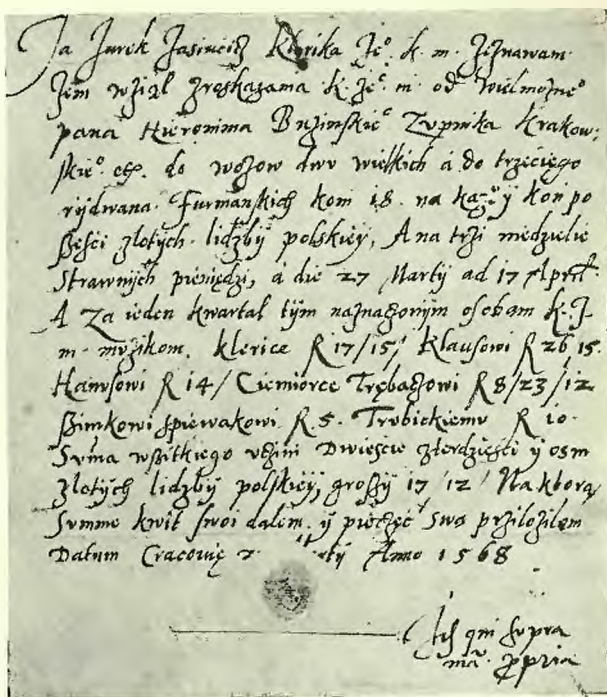 Ja Jurek Jasińcicz Klerika Je° k. m. zeznawam
zem wziął zroskazama k. Je°. m. od wielmozne°
pana Hieronima Bużinskie° Zupnika krakow-
skie°. etc. do wozow dwu wielkich a do trzeciego
rydwana. Furmanskich koni 18. na każdy koń po
sześci złotych. lidzbÿ polskieÿ, A na trzi niedzielie
Strawnÿch pieniędzi, a die 27 Martÿ ad 17 April
A Za ieden kwartał tÿm naznaczonÿm osobam k. J.
m. muzikom. klerice R 17/15/ Klausowi R 26 15.
Hanusowi R 14/ Ciemiorce Trębaczowi R 8/23/12
Szimkowi spiewakowi R 5. Trubickiemu R 10.
Suma wszitkiego uczini Dwieście czterdzieści ÿ osm
złotÿch lidzbÿ polskieÿ, groszÿ 17 /12/ Na ktorą
Summe kwit swoi dałem. ÿ pieczęć swą prziłożiłem
Datum Cracovię Anno 1568
qui supra
mā. ppria